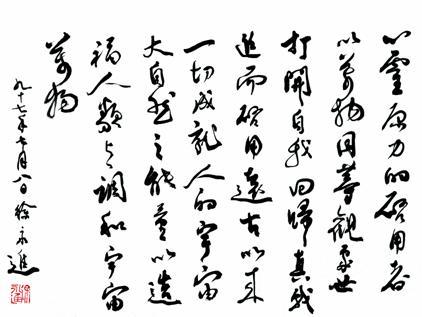 心靈原力的啓用者
以萬物同等觀處世
打開自我回歸真我
進而啓用遠古以來
一切成就人的宇宙
大自然之能量以造
福人類與調和宇宙
萬物
九十七年七月八日徐永進